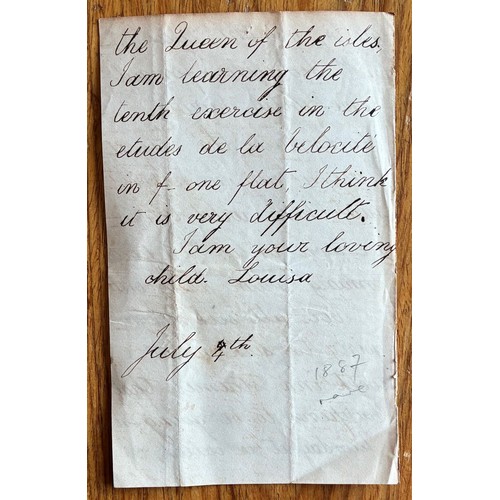 the Queen of the isles,
I am learning the
tenth exercise in the
etudes de la belocité
in f- one flat, I think
it is very difficult.
I am your loving
child. Louisa
July 4th.
1887